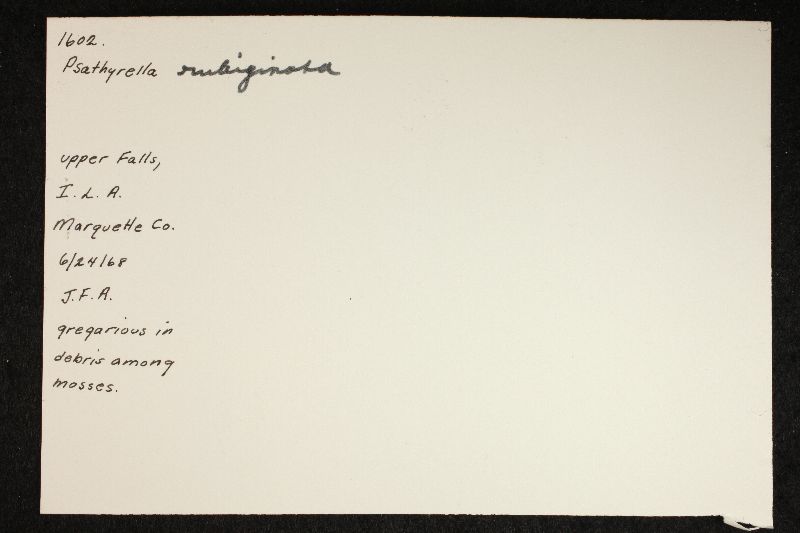 1602.
Psathyrella rubiginosa
upper Falls,
I. L. A.
Marquette Co.
6/24/68
J.F.A.
gregarious in
debris among
mosses.